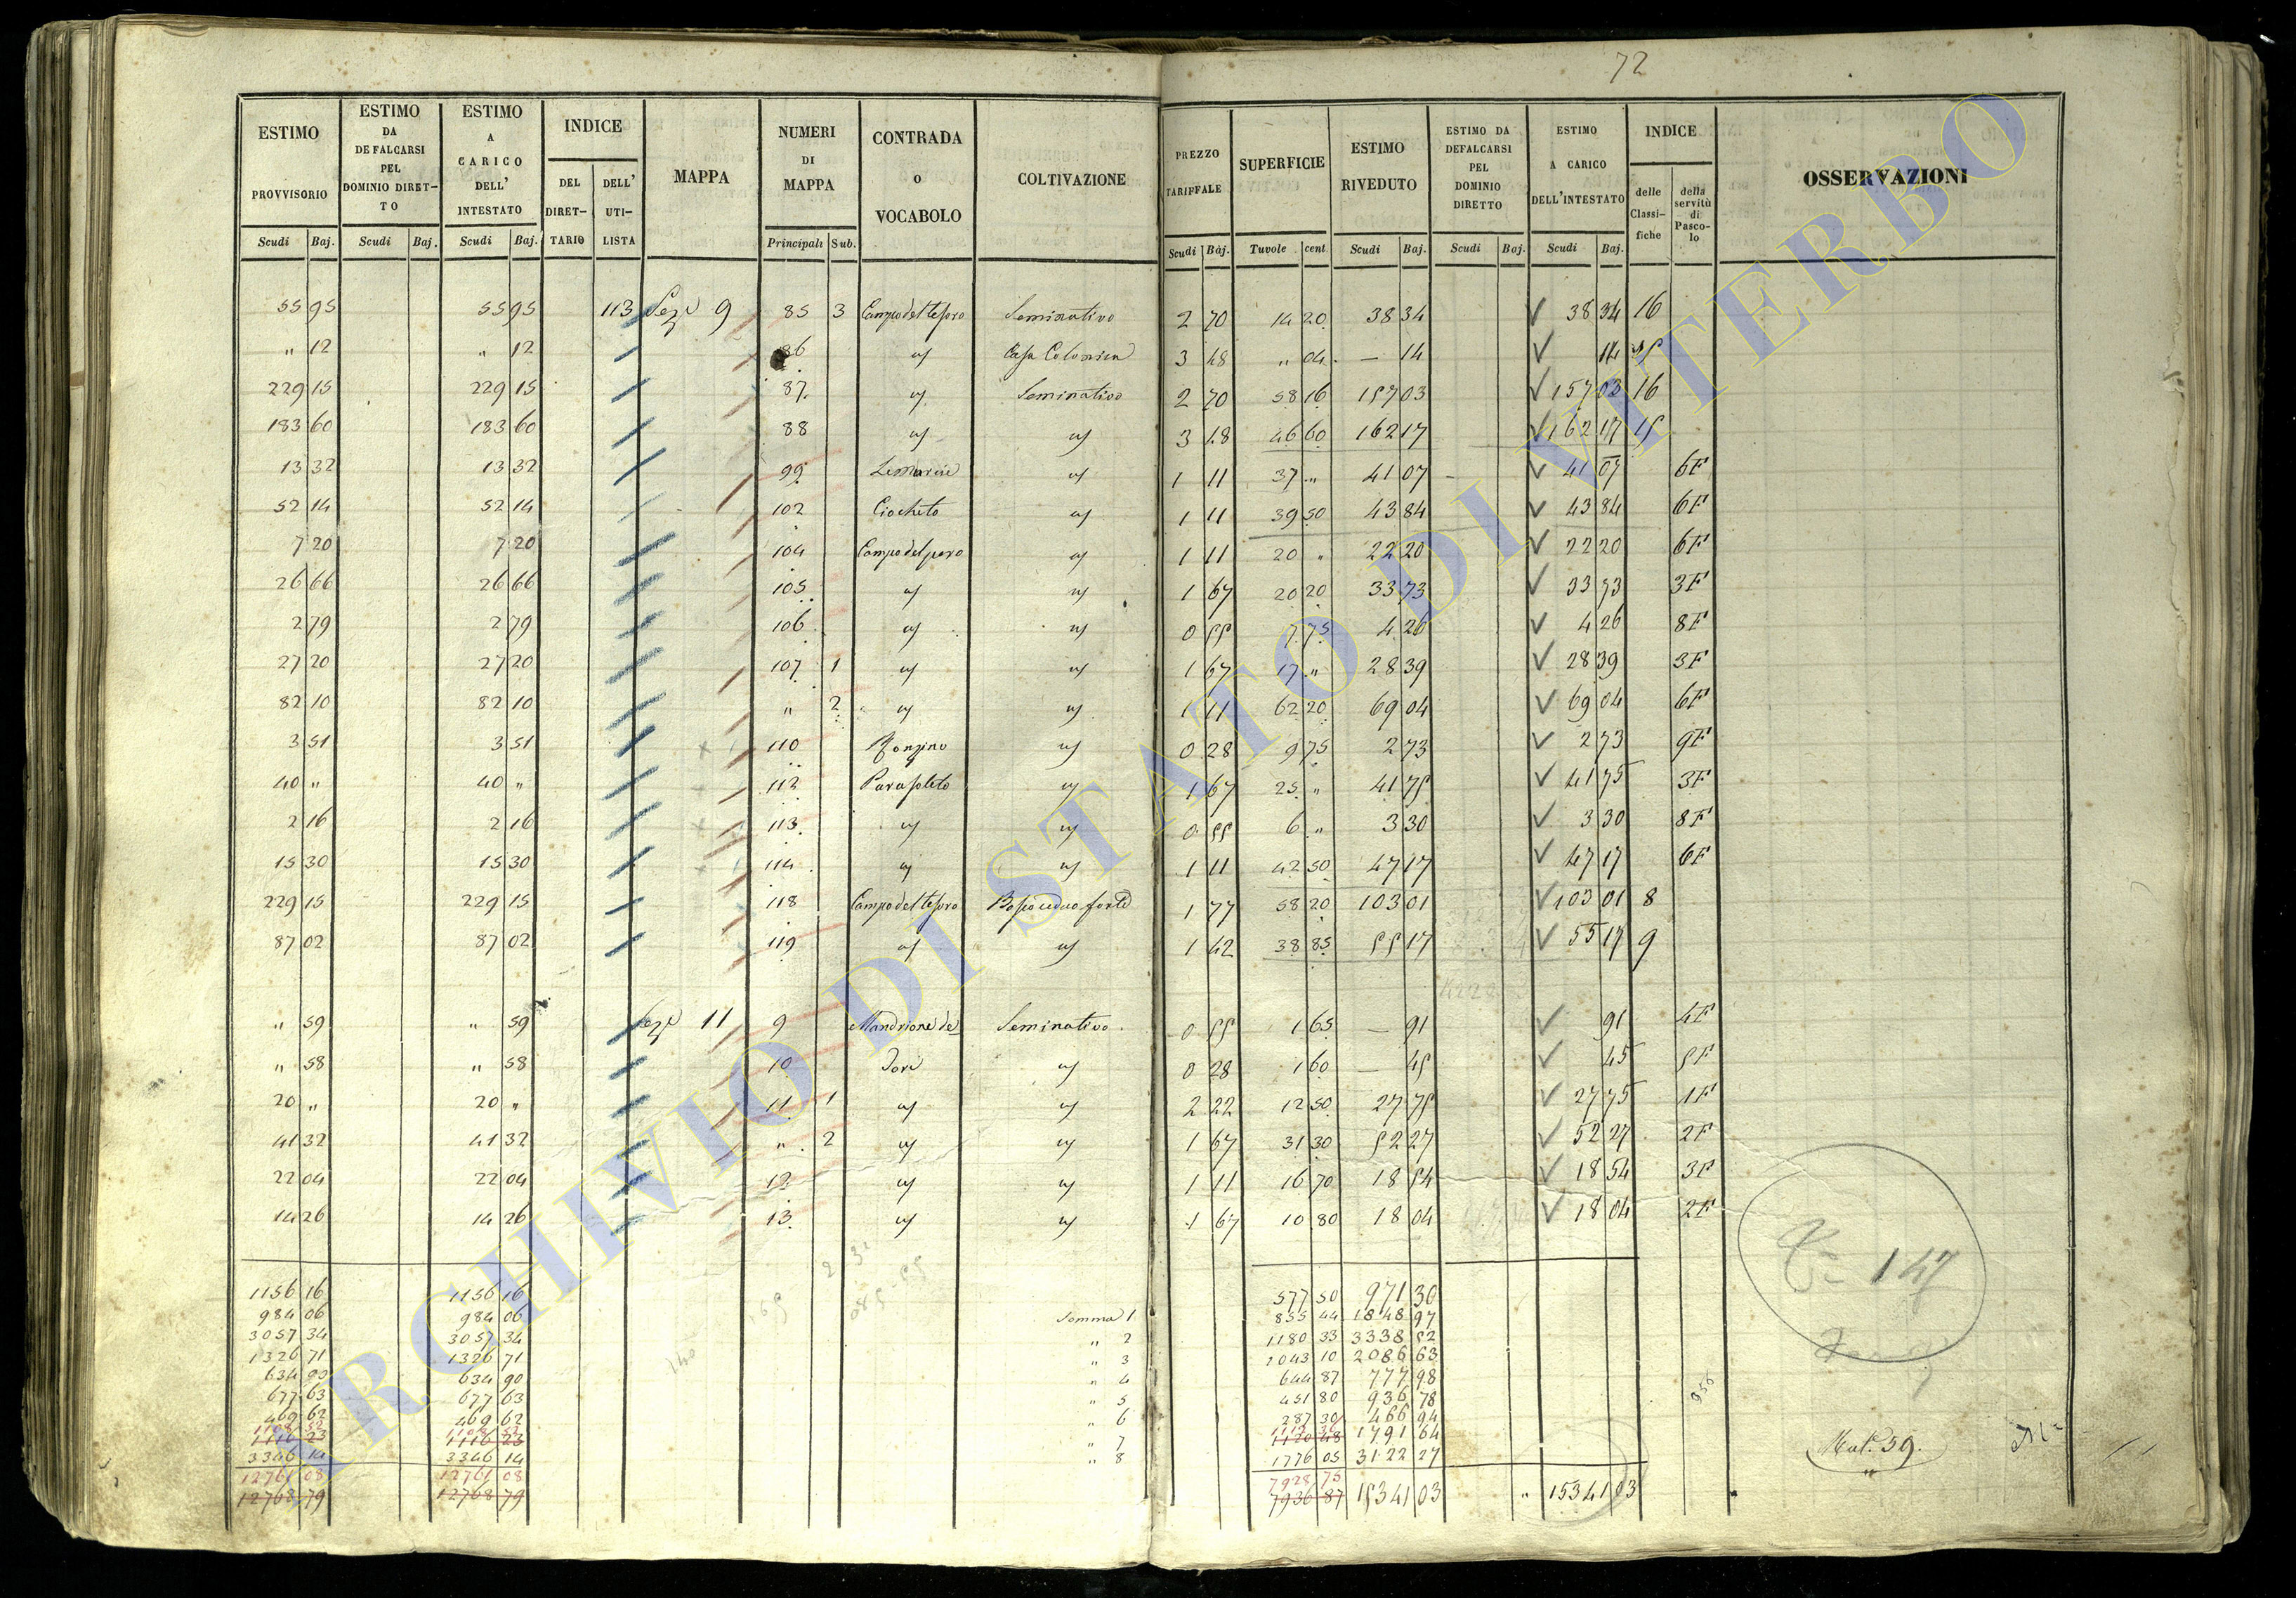 72
ESTIMO PROVVISORIO | ESTIMO DA DEFALCARSI PEL DOMINIO DIRET-TO | ESTIMO A CARICO DELL' INTESTATO | INDICE | MAPPA | NUMERI DI MAPPA | CONTRADA O VOCABOLO | COLTIVAZIONE | PREZZO TARIFFALE | SUPERFICIE | ESTIMO RIVEDUTO | ESTIMO DA DEFALCARSI PEL DOMINIO DIRETTO | ESTIMO A CARICO DELL'INTESTATO | INDICE | OSSERVAZIONI
DEL DIRET-TARIO | DELL' UTI-LISTA | delle Classi-fiche | della servitù di Pasco-lo
Scudi | Baj. | Scudi | Baj. | Scudi | Baj. | Principali | Sub. | Scudi | Baj. | Tavole | cent. | Scudi | Baj. | Scudi | Baj. | Scudi | Baj.
55 95 | 55 95 | 113 | Sez.e 9 | 85 | 3 | Campo del tesoro | Seminativo | 2 70 | 14 20 | 38 34 | 38 34 | 16
" 12 | " 12 | 86 | " | Casa Colonica | 3 48 | " 04 | — 14 | 14
229 15 | 229 15 | 87 | " | Seminativo | 2 70 | 58 16 | 157 03 | 157 03 | 16
183 60 | 183 60 | 88 | " | " | 3 48 | 46 60 | 162 17 | 162 17 | 15
13 32 | 13 32 | 99 | " | 1 11 | 37 " | 41 07 | 41 07 | 6F
52 14 | 52 14 | 102 | Ciocheto | " | 1 11 | 39 50 | 43 84 | 43 84 | 6F
7 20 | 7 20 | 104 | Campo del pero | " | 1 11 | 20 " | 22 20 | 22 20 | 6F
26 66 | 26 66 | 105 | " | " | 1 67 | 20 20 | 33 73 | 33 73 | 3F
2 79 | 2 79 | 106 | " | " | 0 55 | 7 75 | 4 26 | 4 26 | 8F
27 20 | 27 20 | 107 | 1 | " | " | 1 67 | 17 " | 28 39 | 28 39 | 3F
82 10 | 82 10 | " | 2 | " | " | 1 11 | 62 20 | 69 04 | 69 04 | 6F
3 51 | 3 51 | 110 | Ronzino | " | 0 28 | 9 75 | 2 73 | 2 73 | 9F
40 " | 40 " | 112 | " | 1 67 | 25 " | 41 75 | 41 75 | 3F
2 16 | 2 16 | 113 | " | " | 0 55 | 6 " | 3 30 | 3 30 | 8F
15 30 | 15 30 | 114 | " | " | 1 11 | 42 50 | 47 17 | 47 17 | 6F
229 15 | 229 15 | 118 | Campo del tesoro | Bosco ceduo forte | 1 77 | 58 20 | 103 01 | 103 01 | 8
87 02 | 87 02 | 119 | " | " | 1 42 | 38 85 | 55 17 | 55 17 | 9
" 59 | " 59 | Sez.e 11 | 9 | Mandrione de | Seminativo | 0 55 | 1 65 | — 91 | 91 | 4F
" 58 | " 58 | 10 | Tori | " | 0 28 | 1 60 | — 45 | 45 | 5F
20 " | 20 " | 11 | 1 | " | " | 2 22 | 12 50 | 27 75 | 27 75 | 1F
41 32 | 41 32 | " | 2 | " | " | 1 67 | 31 30 | 52 27 | 52 27 | 2F
22 04 | 22 04 | 12 | " | " | 1 11 | 16 70 | 18 54 | 18 54 | 3F
14 26 | 14 26 | 13 | " | " | 1 67 | 10 80 | 18 04 | 18 04 | 2F
147
1156 16 | 1156 16 | 577 50 | 971 30
984 06 | 984 06 | Somma 1 | 855 44 | 1848 97
3057 34 | 3057 34 | " 2 | 1180 33 | 3338 52
1326 71 | 1326 71 | " 3 | 1043 10 | 2086 63
634 90 | 634 90 | " 4 | 644 87 | 777 98
677 63 | 677 63 | " 5 | 451 80 | 936 78
469 62 | 469 62 | " 6 | 287 30 | 466 94
1108 52 | 1108 52
1116 23 | 1116 23 | " 7 | 1120 48 | 1791 64
3346 14 | 3346 14 | " 8 | 1776 05 | 3122 27
12761 08 | 12761 08 | 7928 75
12768 79 | 12768 79 | 7936 87 | 15341 03 | " | 15341 03
Mat. 59.
ARCHIVIO DI STATO DI VITERBO